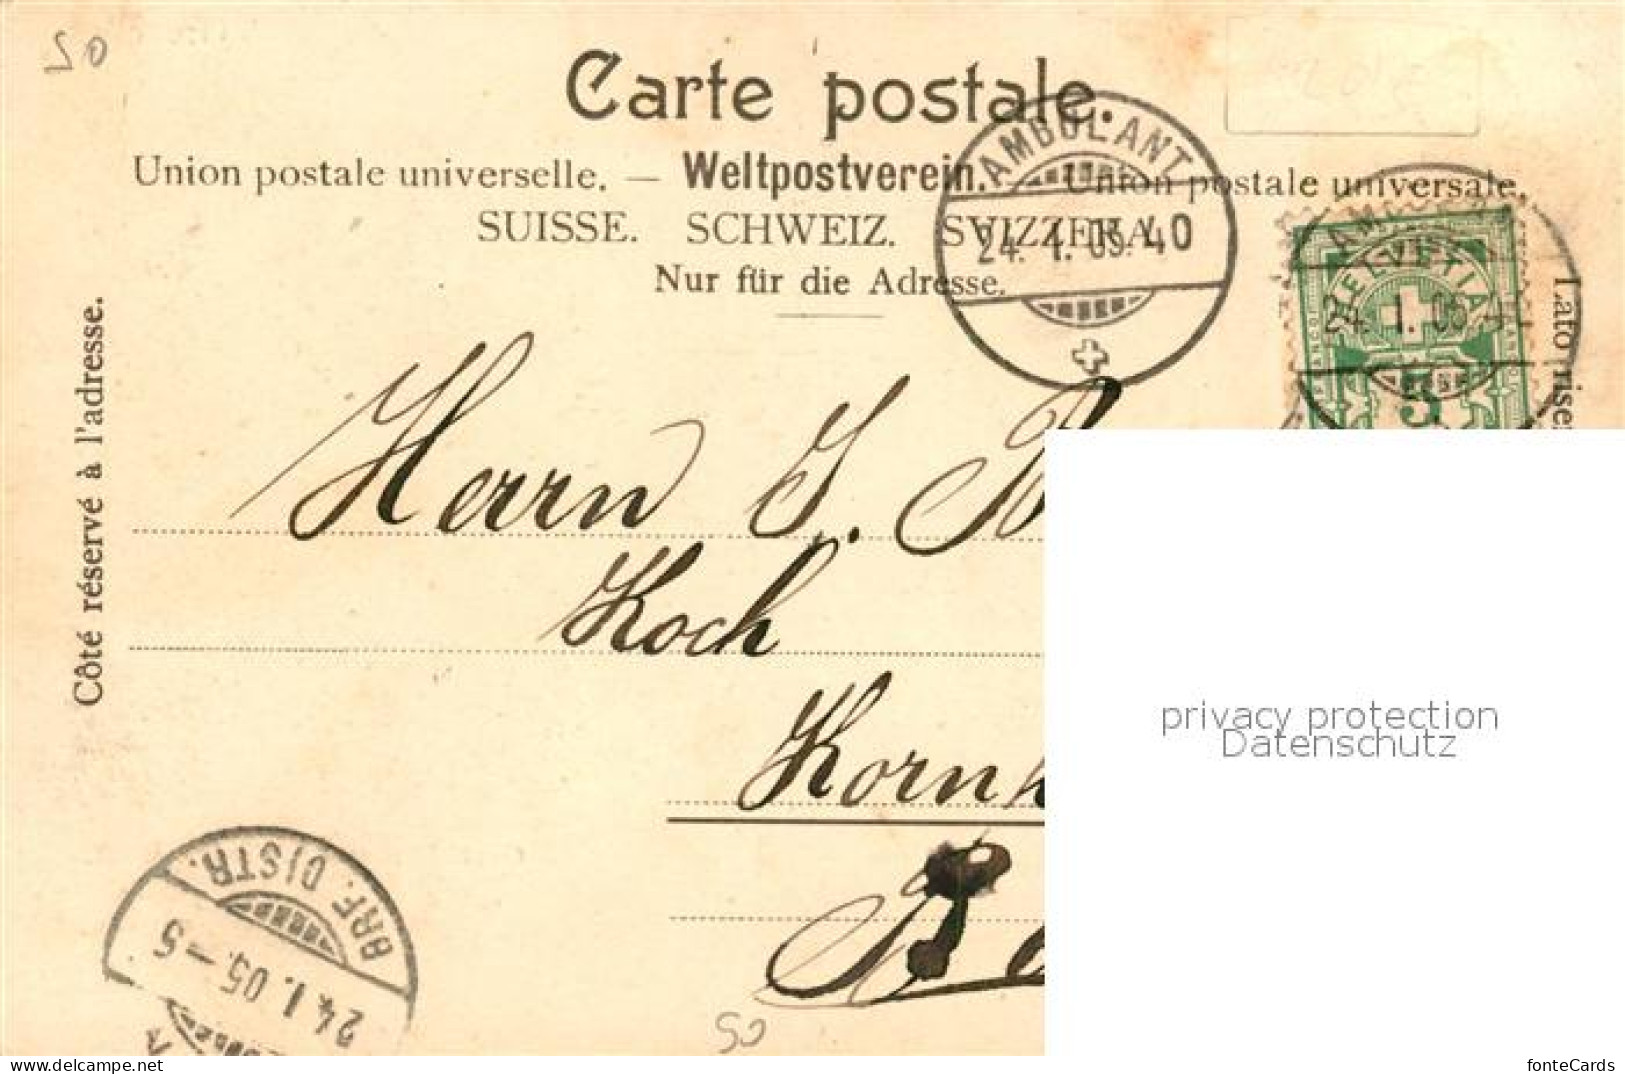 SO
Carte postale.
Union postale universelle. — Weltpostverein. — Union postale universale.
SUISSE. SCHWEIZ. SVIZZERA.
Nur für die Adresse.
Côté réservé à l'adresse.
AMBULANT
24. I. 05. 40
HELVETIA
5
Herrn J. B
Koch
Kornh
Be
BRF. DISTR.
24. I. 05. — 5
SO
privacy protection
Datenschutz
fonteCards